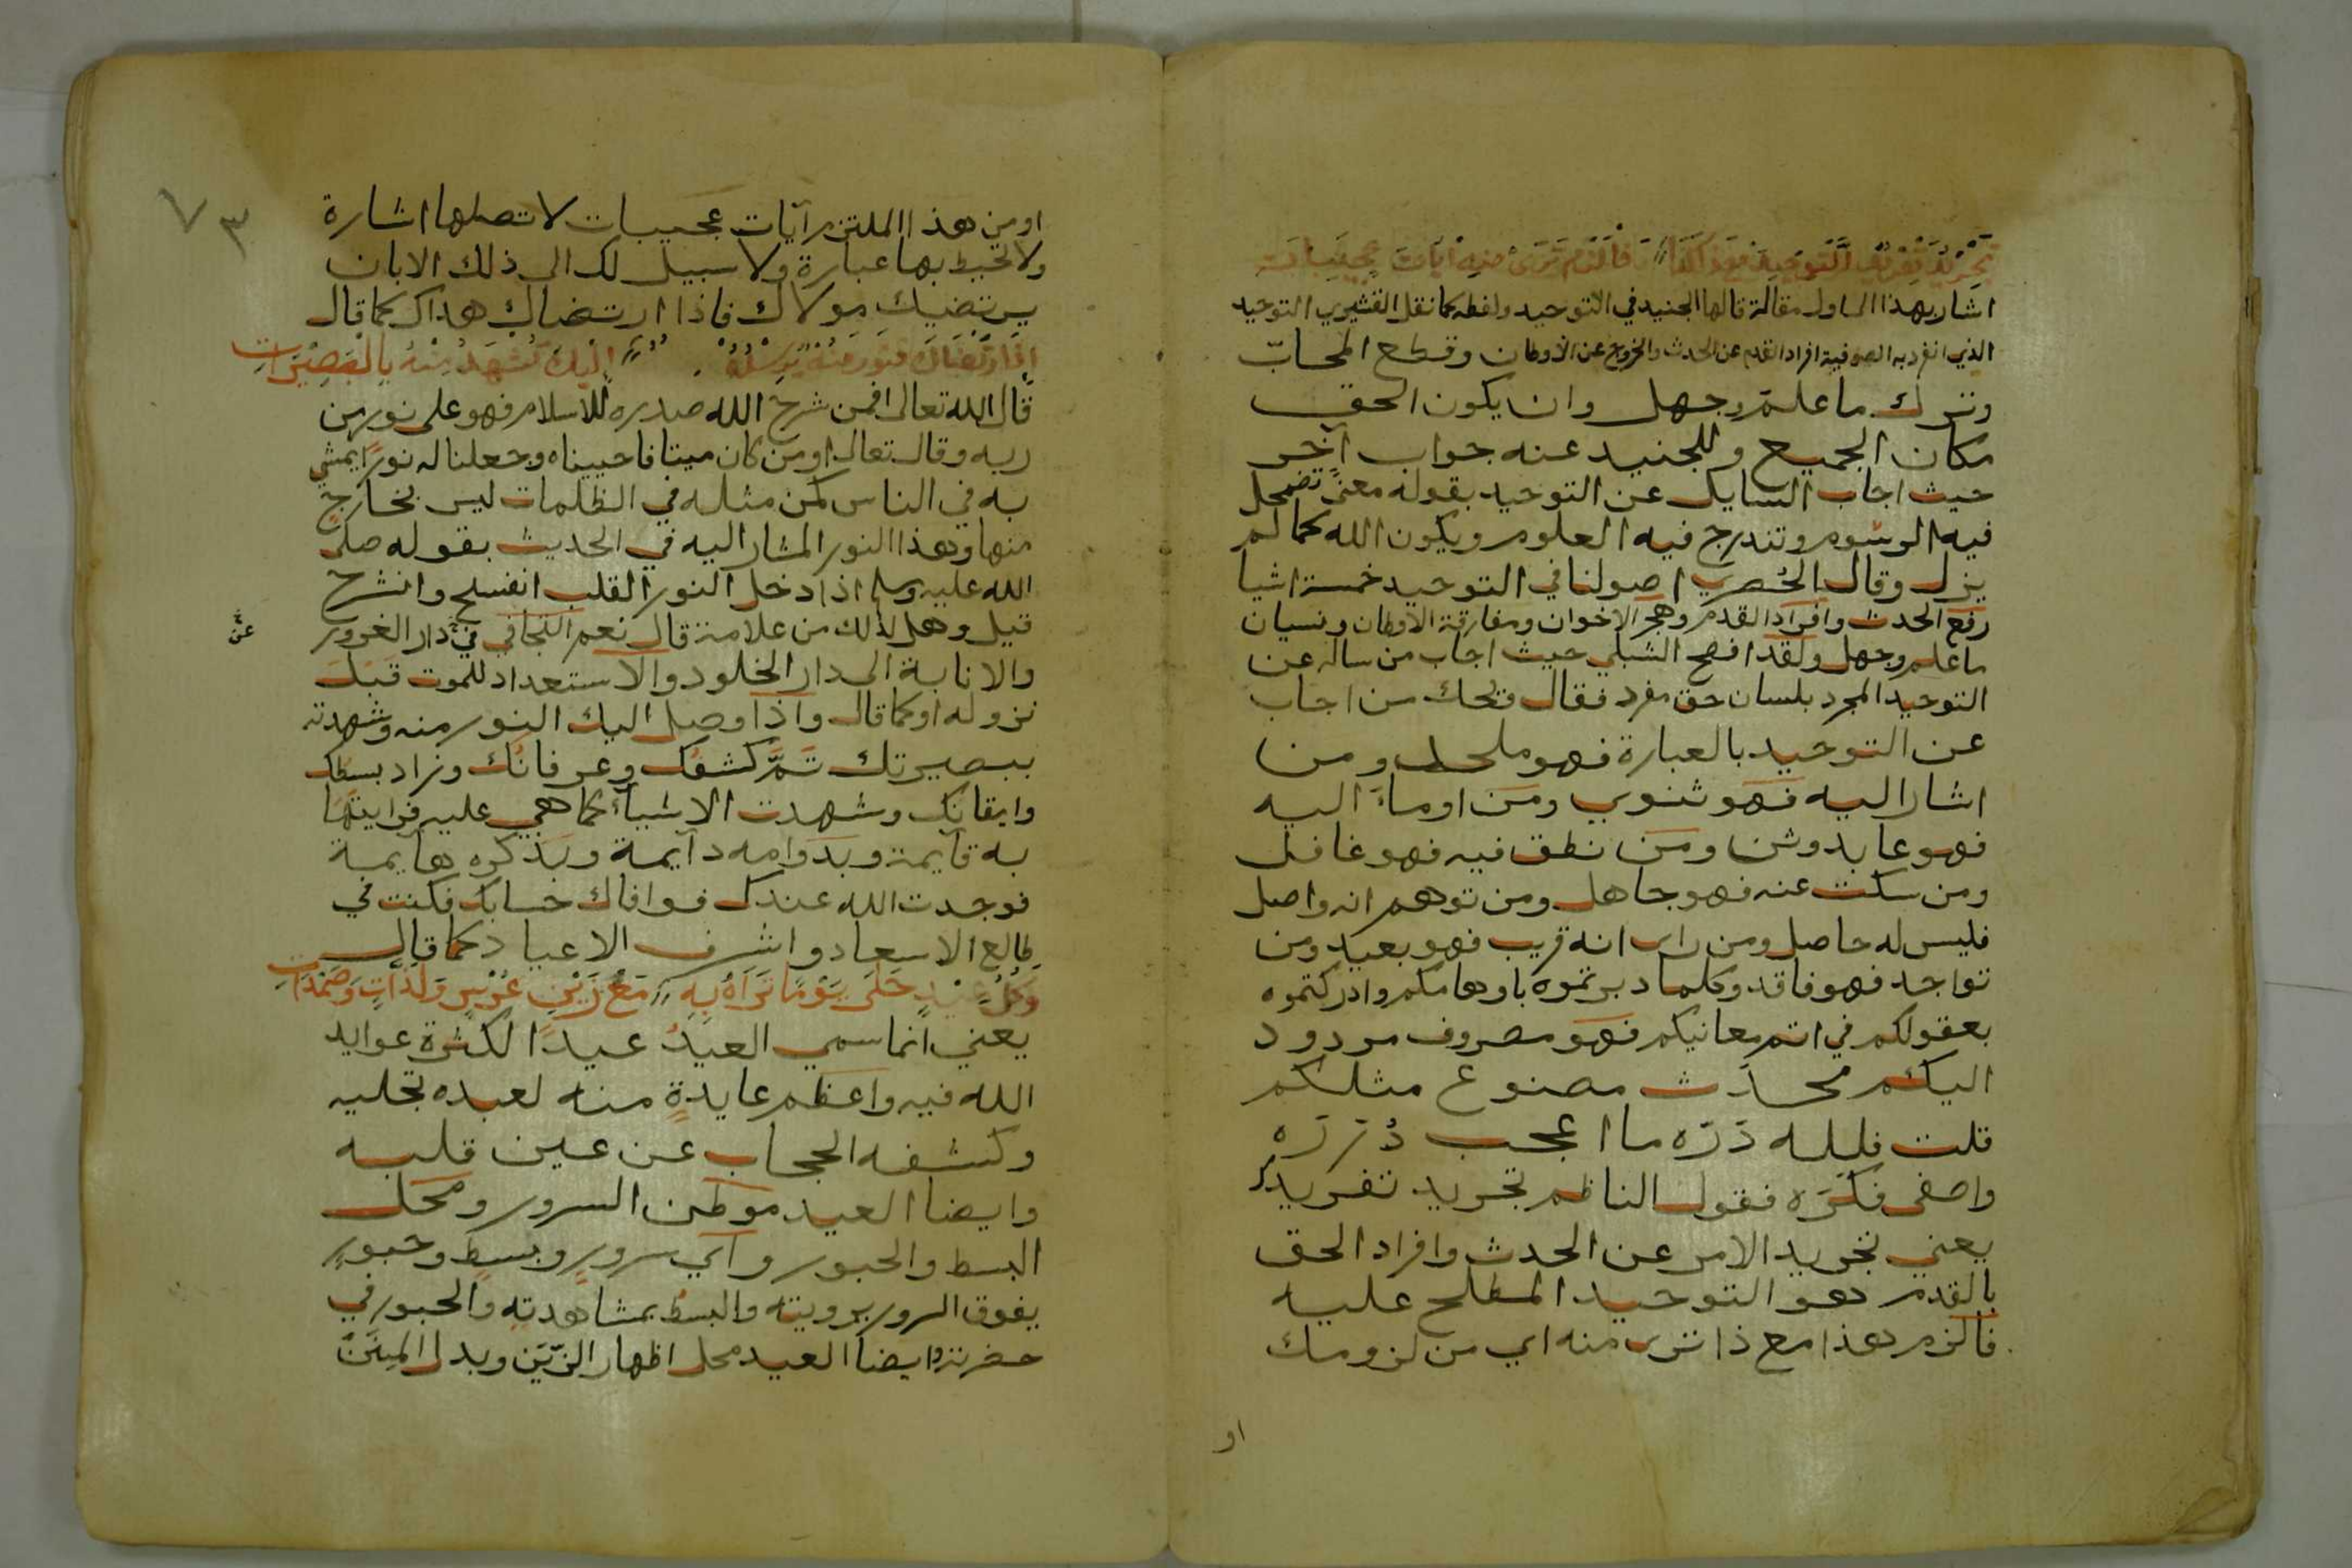 تجريد تفريد التوحيد فالزم ترى منه آيات عجيبات
اشار بهذا الى اول مقالة قالها الجنيد في التوحيد ولفظه كما نقل القشيري التوحيد
الذي انفرد به الصوفية افراد القدم عن الحدث والخروج عن الاوطان وقطع المحابّ
وترك ما علم وجهل وان يكون الحق
مكان الجميع وللجنيد عنه جواب آخر
حيث اجاب السايل عن التوحيد بقوله معنىً تضمحل
فيه الرسوم وتندرج فيه العلوم ويكون الله كما لم
يزل وقال الحُصري اصولنا في التوحيد خمسة اشيا
رفع الحدث وافراد القدم وهجر الاخوان ومفارقة الاوطان ونسيان
ما علم وجهل ولقد افصح الشبلي حيث اجاب من ساله عن
التوحيد المجرد بلسان حق مفرد فقال ويحك من اجاب
عن التوحيد بالعبارة فهو ملحد ومن
اشار اليه فهو ثنوي ومن اومأ اليه
فهو عابد وثن ومن نطق فيه فهو غافل
ومن سكت عنه فهو جاهل ومن توهم انه واصل
فليس له حاصل ومن راى انه قريب فهو بعيد ومن
تواجد فهو فاقد وكلما دبرتموه باوهامكم وادركتموه
بعقولكم في اتم معانيكم فهو مصروف مردود
اليكم محدَث مصنوع مثلكم
قلت فلله درّه ما اعجب دُرَرَه
واصفى فكره فقول الناظم تجريد تفريد
يعني تجريد الامر عن الحدث وافراد الحق
بالقدم هو التوحيد المصطلح عليه
فالزم هذا مع ذا ترى منه اي من لزومك
او
٧٣
او من هذا الملتزم آيات عجيبات لا تصلها اشارة
ولا تحيط بها عبارة ولا سبيل لك الى ذلك الا بان
يرتضيك مولاك فاذا ارتضاك هداك كما قال
اذا ارتضاك فنور منه يرسله اليك تشهد منه بالبصيرات
قال الله تعالى افمن شرح الله صدره للاسلام فهو على نور من
ربه وقال تعالى اومن كان ميتا فاحييناه وجعلنا له نورًا يمشي
به في الناس كمن مثله في الظلمات ليس بخارج
منها وهذا النور المشار اليه في الحديث بقوله صلى
الله عليه وسلم اذا دخل النور القلب انفسح وانشرح
قيل وهل لذلك من علامة قال نعم التجافي في دار الغرور
عن
والانابة الى دار الخلود والاستعداد للموت قبل
نزوله او كما قال واذا وصل اليك النور منه وشهدته
ببصيرتك تمَّ كشفك وعرفانك وزاد بسطك
وايقانك وشهدت الاشياء كما هي عليه فرايتها
به قايمة وبدوامه دآيمة وبذكره هايمة
فوجدت الله عندك فوافاك حسابك فكنت في
طالع الاسعاد واشرف الاعياد كما قال
وكل عيدٍ حلى يومًا تراه به مع زين عرس ولذاتٍ
يعني انما سمي العيدُ عيدًا لكثرة عوايد
الله فيه واعظم عايدةٍ منه لعبده تجليه
وكشفه الحجاب عن عين قلبه
وايضا العيد موطن السرور ومحل
البسط والحبور وآي سرورٍ وبسطٍ وحبورٍ
يفوق السرور برويته والبسط بمشاهدته والحبور في
حضرته وايضا العيد محل اظهار الزّيَن وبدل المِنَن